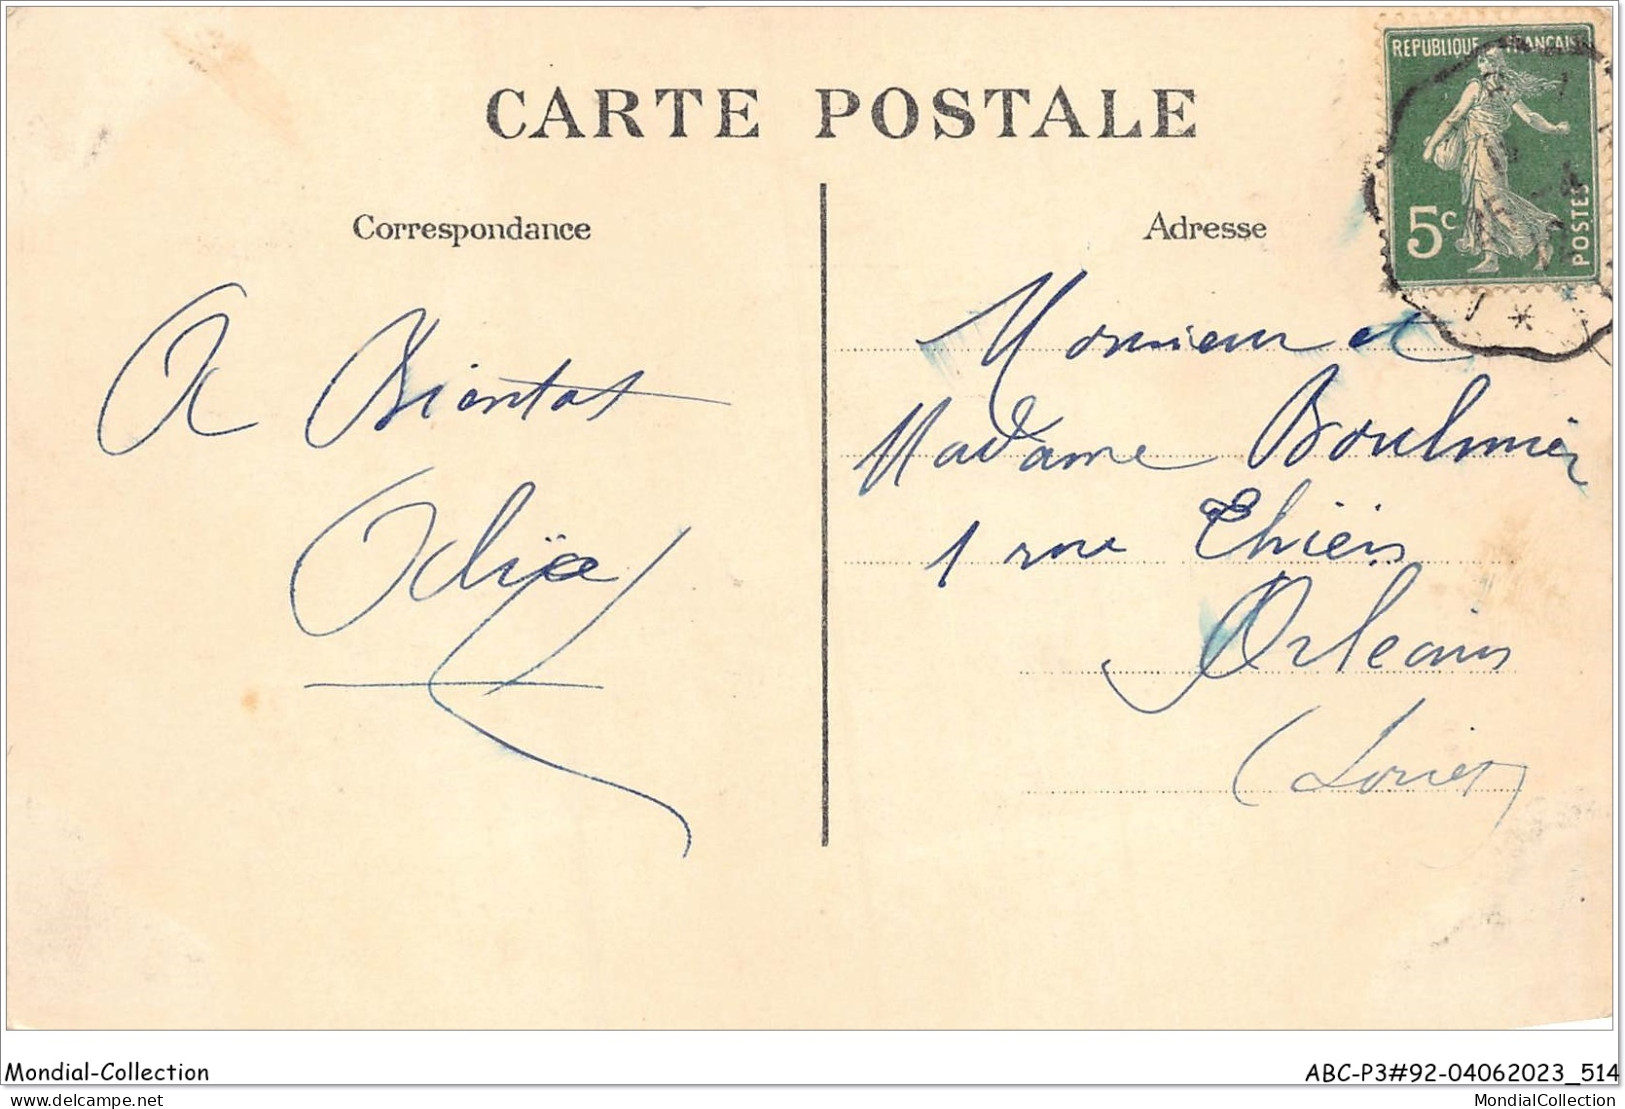 CARTE POSTALE
Correspondance
Adresse
REPUBLIQUE FRANÇAISE
5c
POSTES
A Bientot
Monsieur et
Madame Boulmier
1 rue Thiers
Orleans
(Loiret)
Mondial-Collection
ABC-P3#92-04062023_514
delcampe.net
MondialCollection